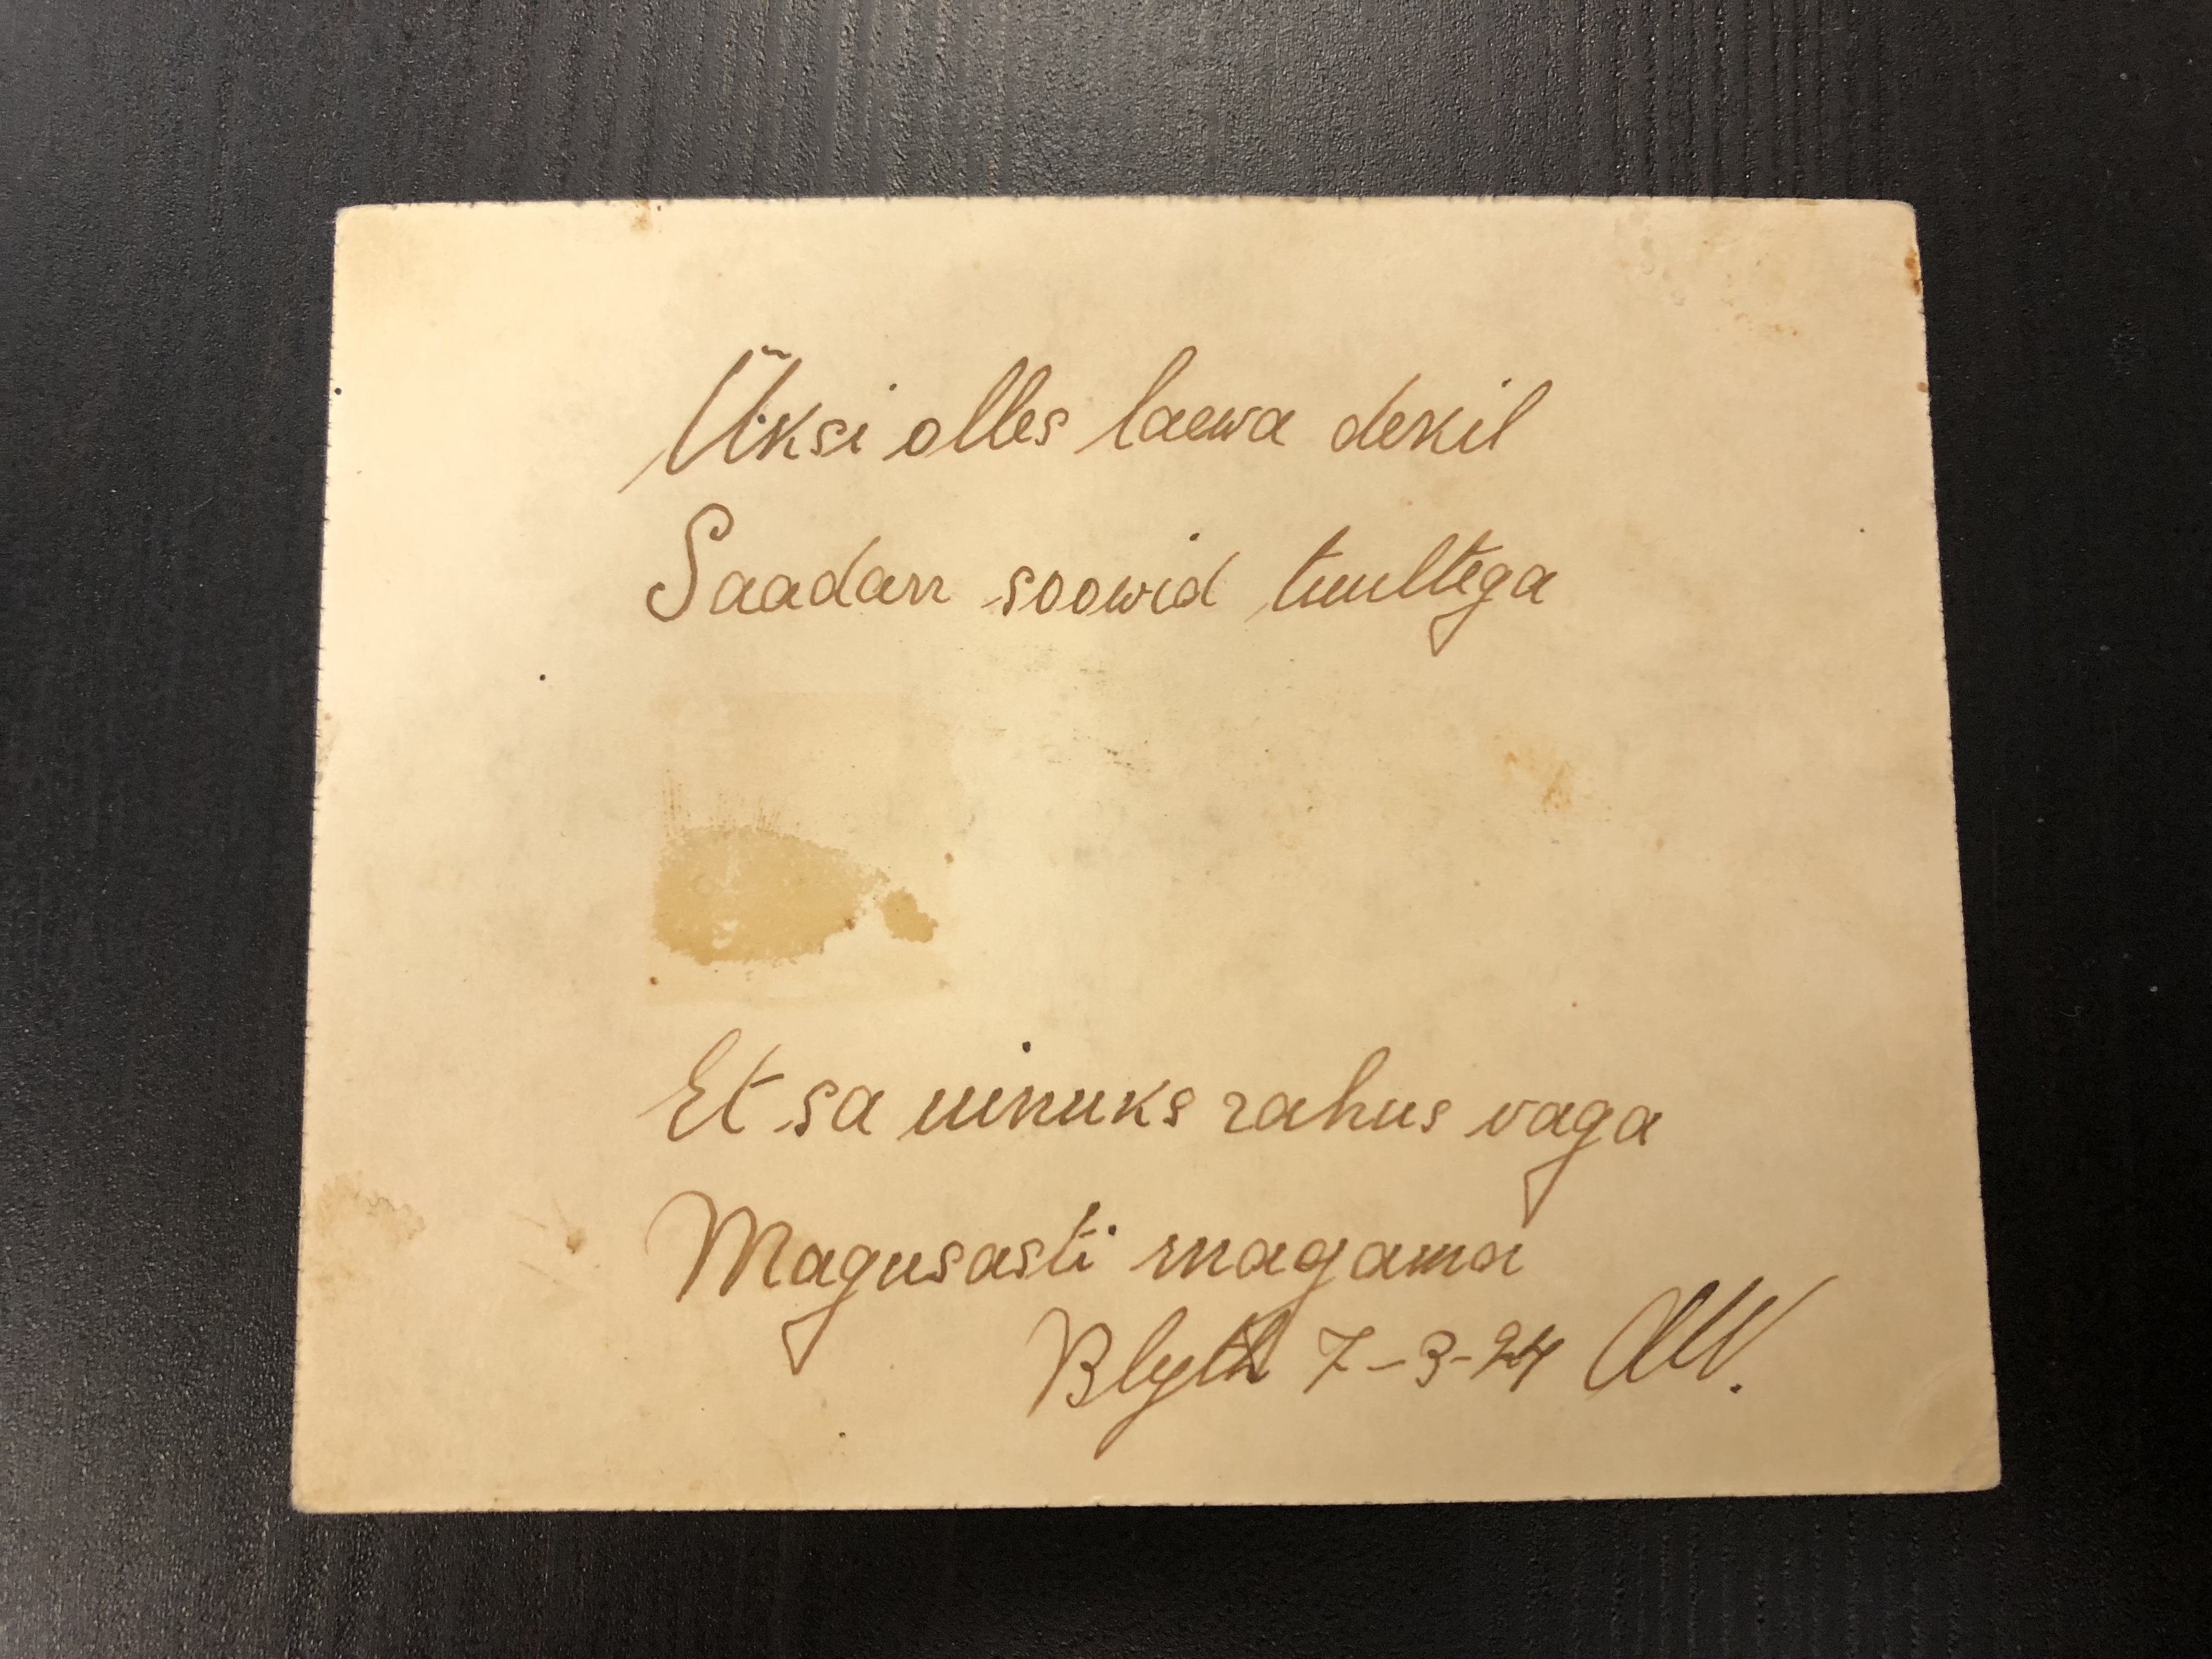 Üksi olles laewa dekil
Saadan soowid tuultega
Et sa uinuks rahus vaga
Magusasti magama
Blyth 7-3-24 AW.